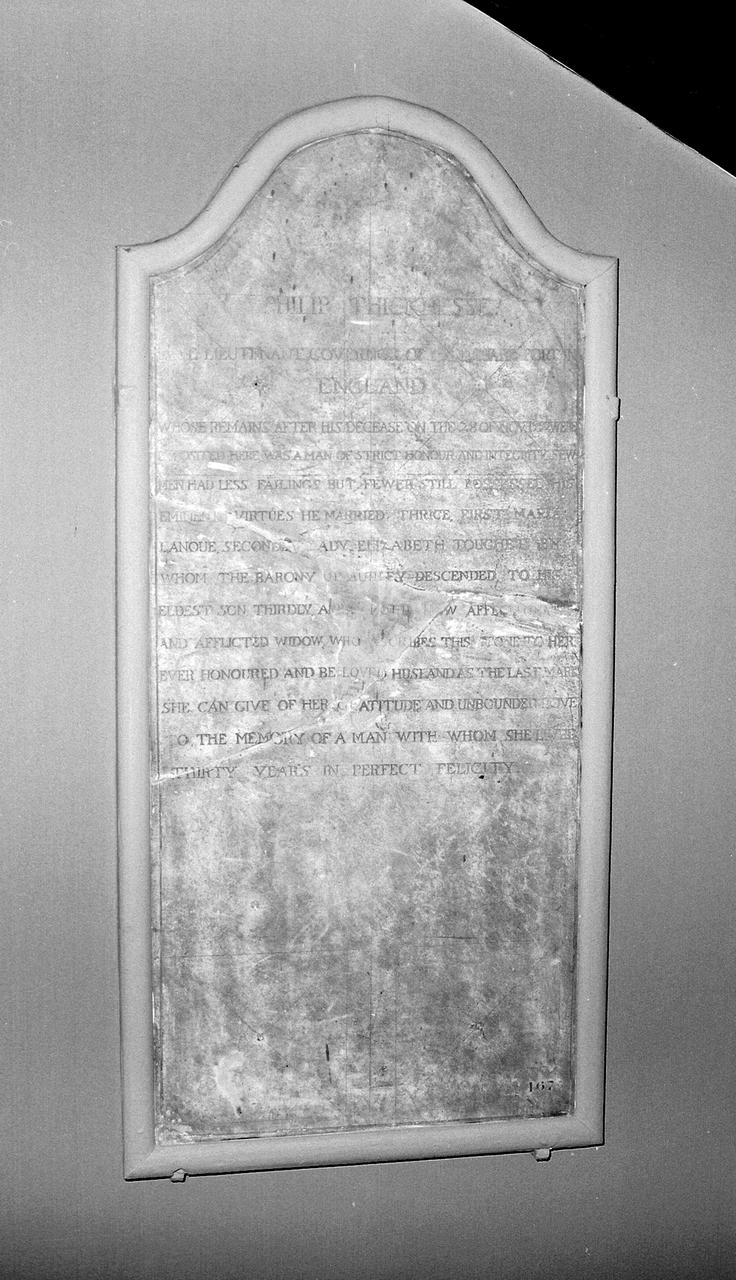 PHILIP THICKNESSE
LIEUTENANT GOVERNOR OF FORT IN
ENGLAND
WHOSE REMAINS AFTER HIS DECEASE ON THE OF WERE
HERE WAS A MAN OF STRICT HONOUR AND INTEGRITY FEW
MEN HAD LESS FAILINGS BUT FEWER STILL POSSESSED HIS
VIRTUES HE MARRIED THRICE, FIRST MARIA
LANOUE, SECONDLY LADY ELIZABETH TOUCHET
WHOM THE BARONY OF AUDLEY DESCENDED, TO HIS
ELDEST SON THIRDLY
AND AFFLICTED WIDOW, WHO THIS STONE TO HER
EVER HONOURED AND BE-LOVED HUSBAND AS THE LAST MARK
SHE CAN GIVE OF HER GRATITUDE AND UNBOUNDED LOVE
TO THE MEMORY OF A MAN WITH WHOM SHE LIVED
THIRTY YEARS IN PERFECT FELICITY
167